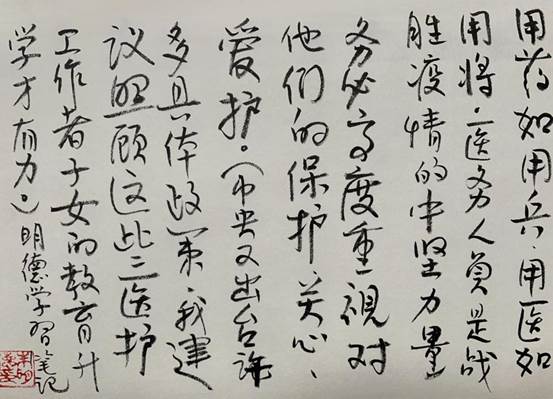 用药如用兵，用医如
用将。医务人员是战
胜疫情的中坚力量
务必高度重视对
他们的保护、关心、
爱护。（中央又出台许
多具体政策，我建
议照顾这些医护
工作者子女的教育升
学才有力。）明德学习笔记